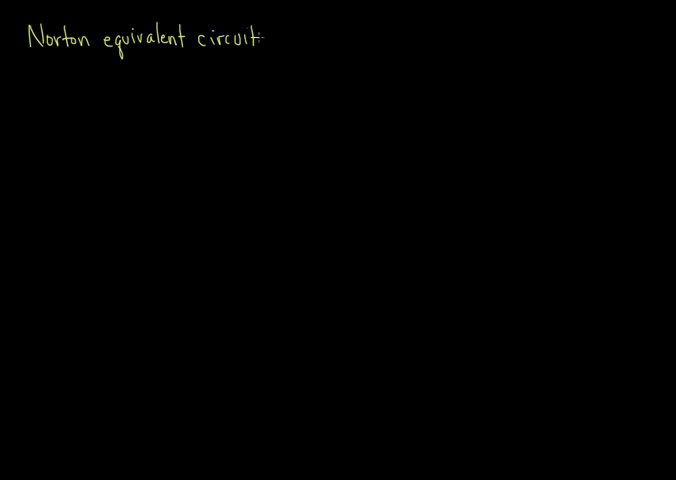 Norton equivalent circuit: